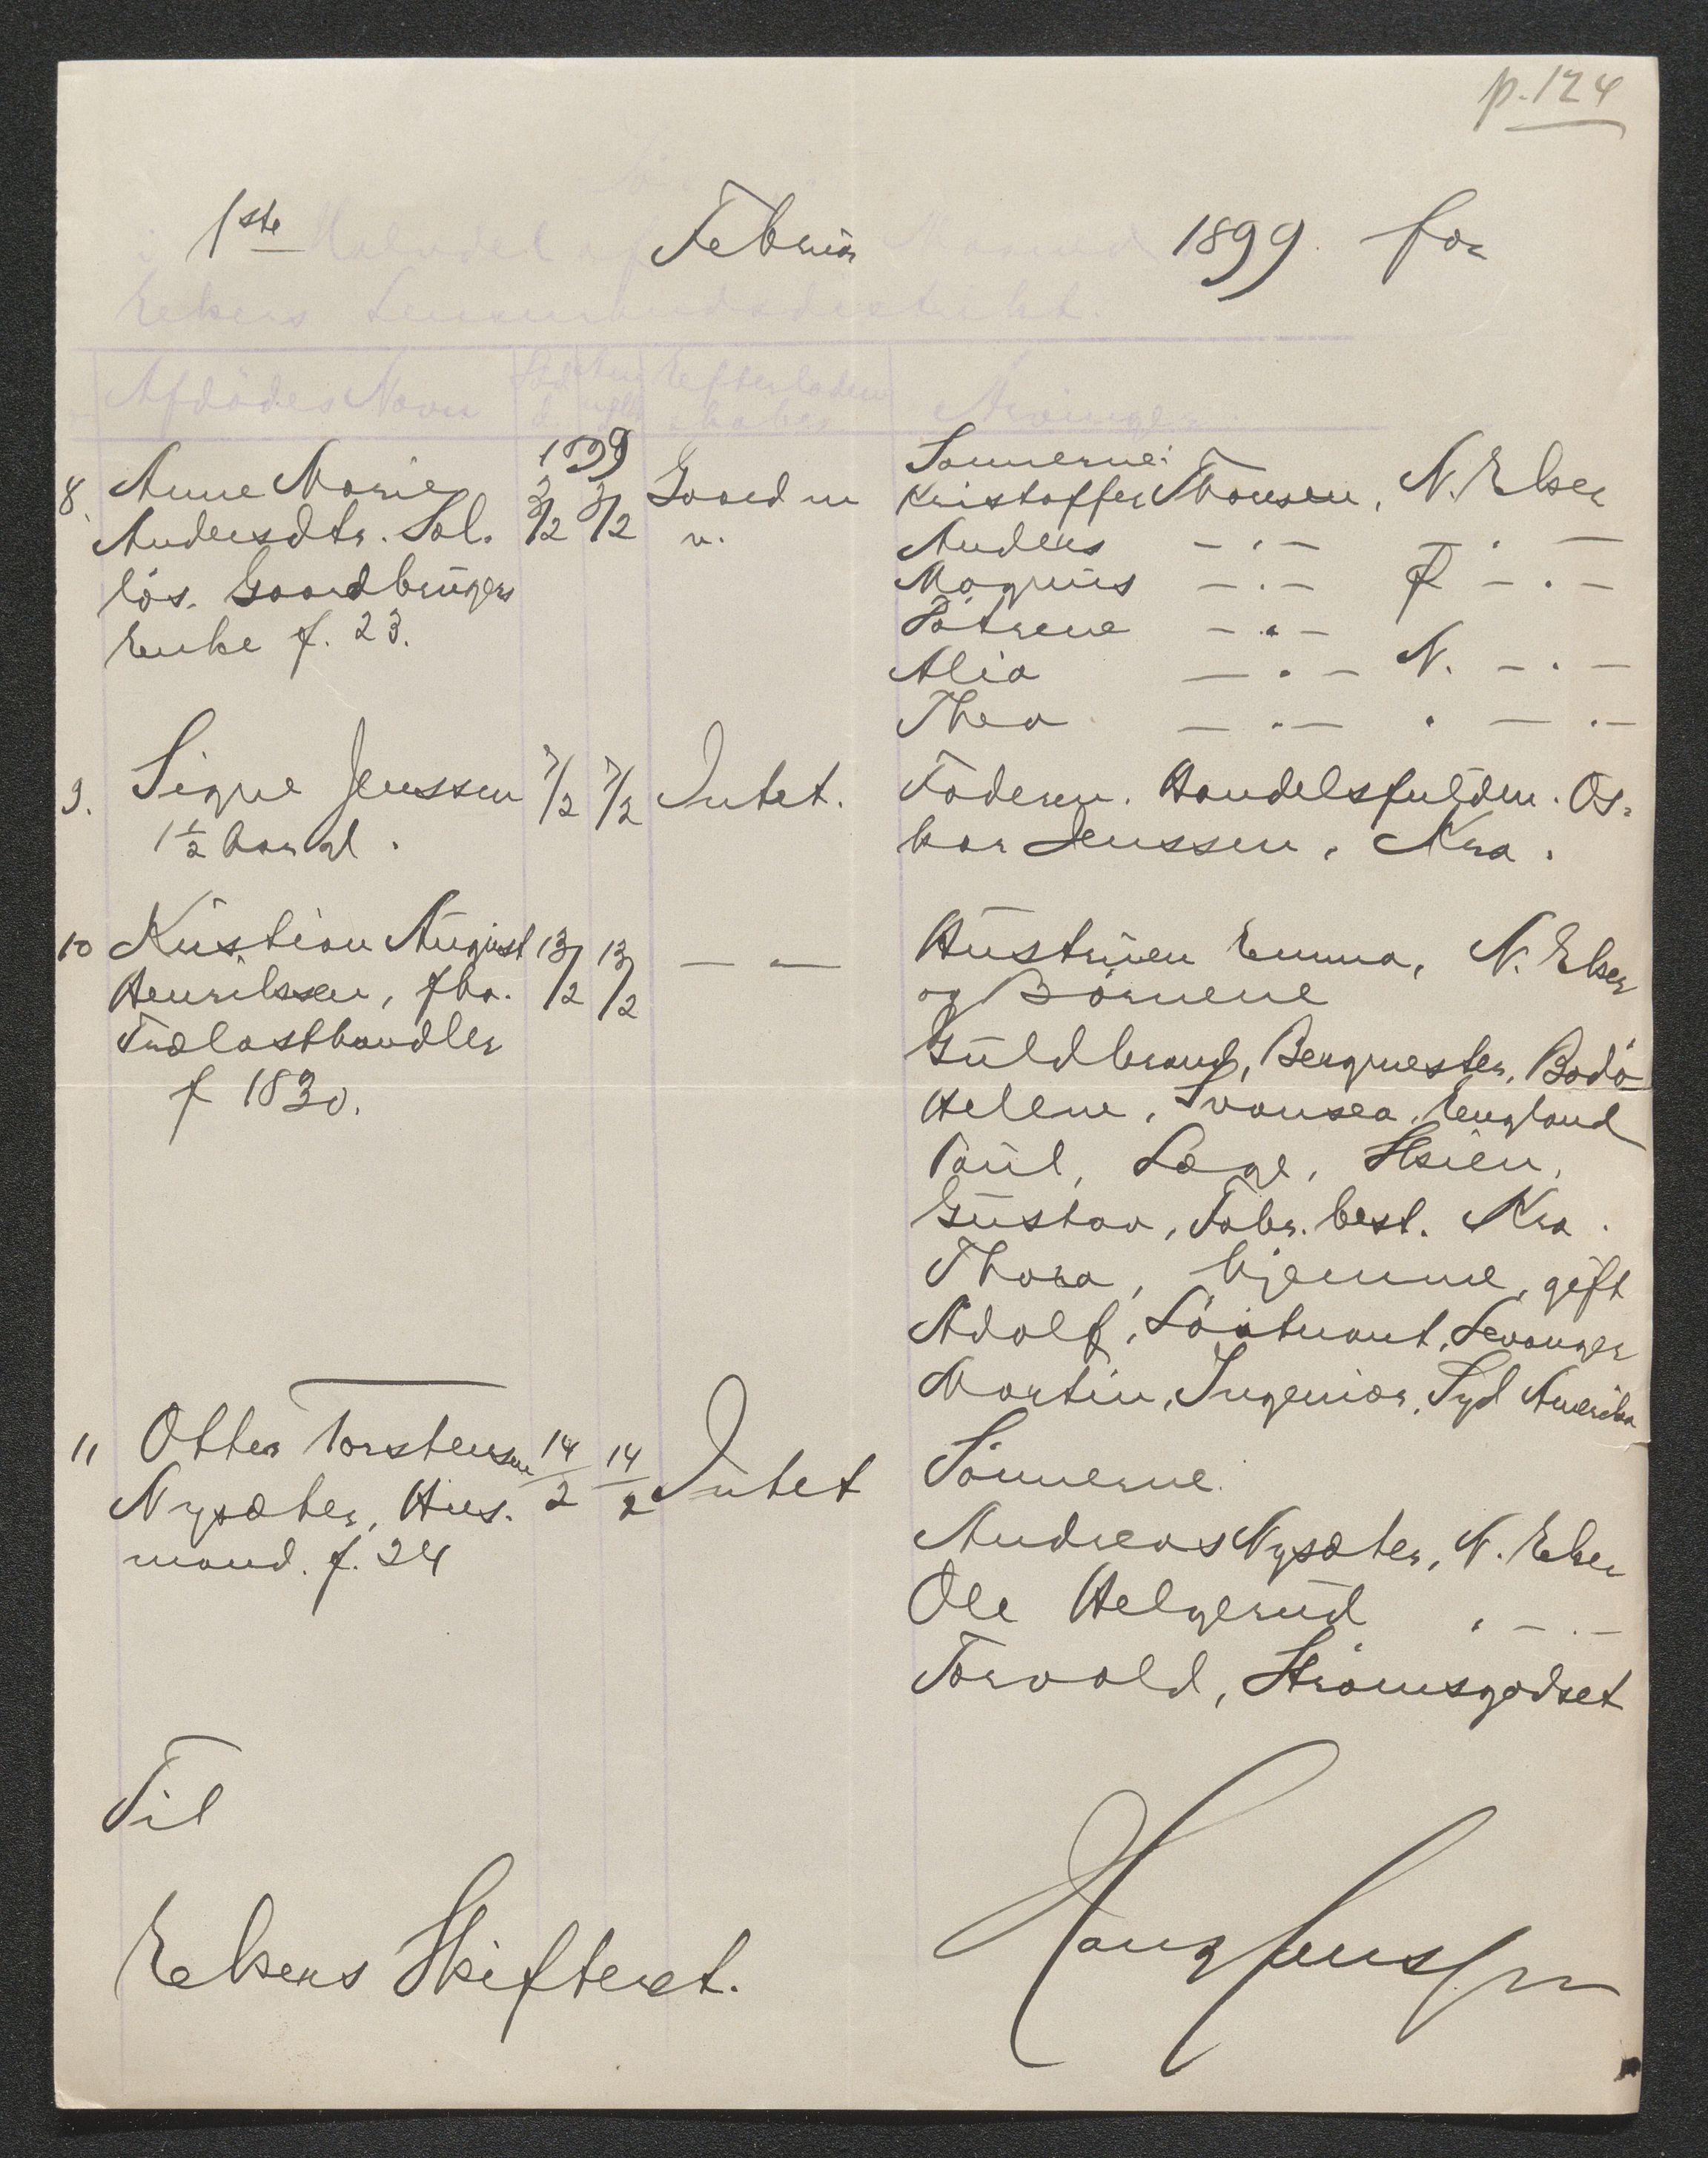 p. 124
1ste Halvdel af Februar Maaned 1899 for
Ekers Lensmandsdistrikt.
Afdødes Navn Efterladenskaber Arvinger
1899
8. Anne Marie 3/2 3/2 Gaard m Sønnerne:
Kristoffer Thonsen, N. Eker
Andersdtr. Sol. v. Anders — . — — . —
løs. Gaardbrugers Magnus — . — — . —
Døtrene — . —
Enke f. 23.
Alia — . — N. — . —
Thea — . — . — . —
9. Signe Jenssen 7/2 7/2 Intet. Faderen. Handelsfuldm. Os-
1½ Aar gl. kar Jenssen, Kra.
10 Kristian August 13/2 13/2 — — Hustruen Emma, N. Eker
Henrikssen, fhv. og Børnene
Trælasthandler Guldbrand, Bergmester, Bodø
f 1830. Helene, Svansea, England
Paul, Læge, Skien,
Gustav, Fabr. best. Kra.
Thora, hjemme, gift
Adolf, Løitnant, Levanger
Martin, Ingeniør, Syd Amerika
11 Otter Torstensen 14/2 14/2 Intet Sønnerne.
Nysæter, Hus- Andreas Nysæter, N. Eker
mand. f. 24 Ole Helgerud . — . —
Torvald, Strømsgodset
Til
Ekers Skifteret.